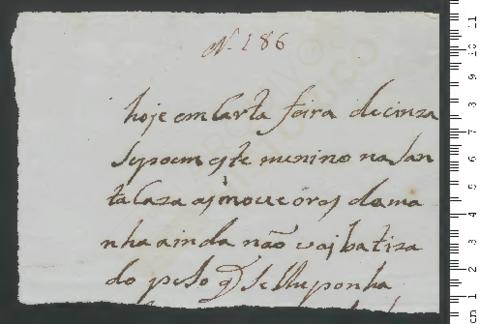 Nº 186
hoje em Carta feira de cinza
sepoem este menino na San
ta Caza as noue óras da ma
nha ainda não vaj batiza
do pelo q̃ se lhe ponha